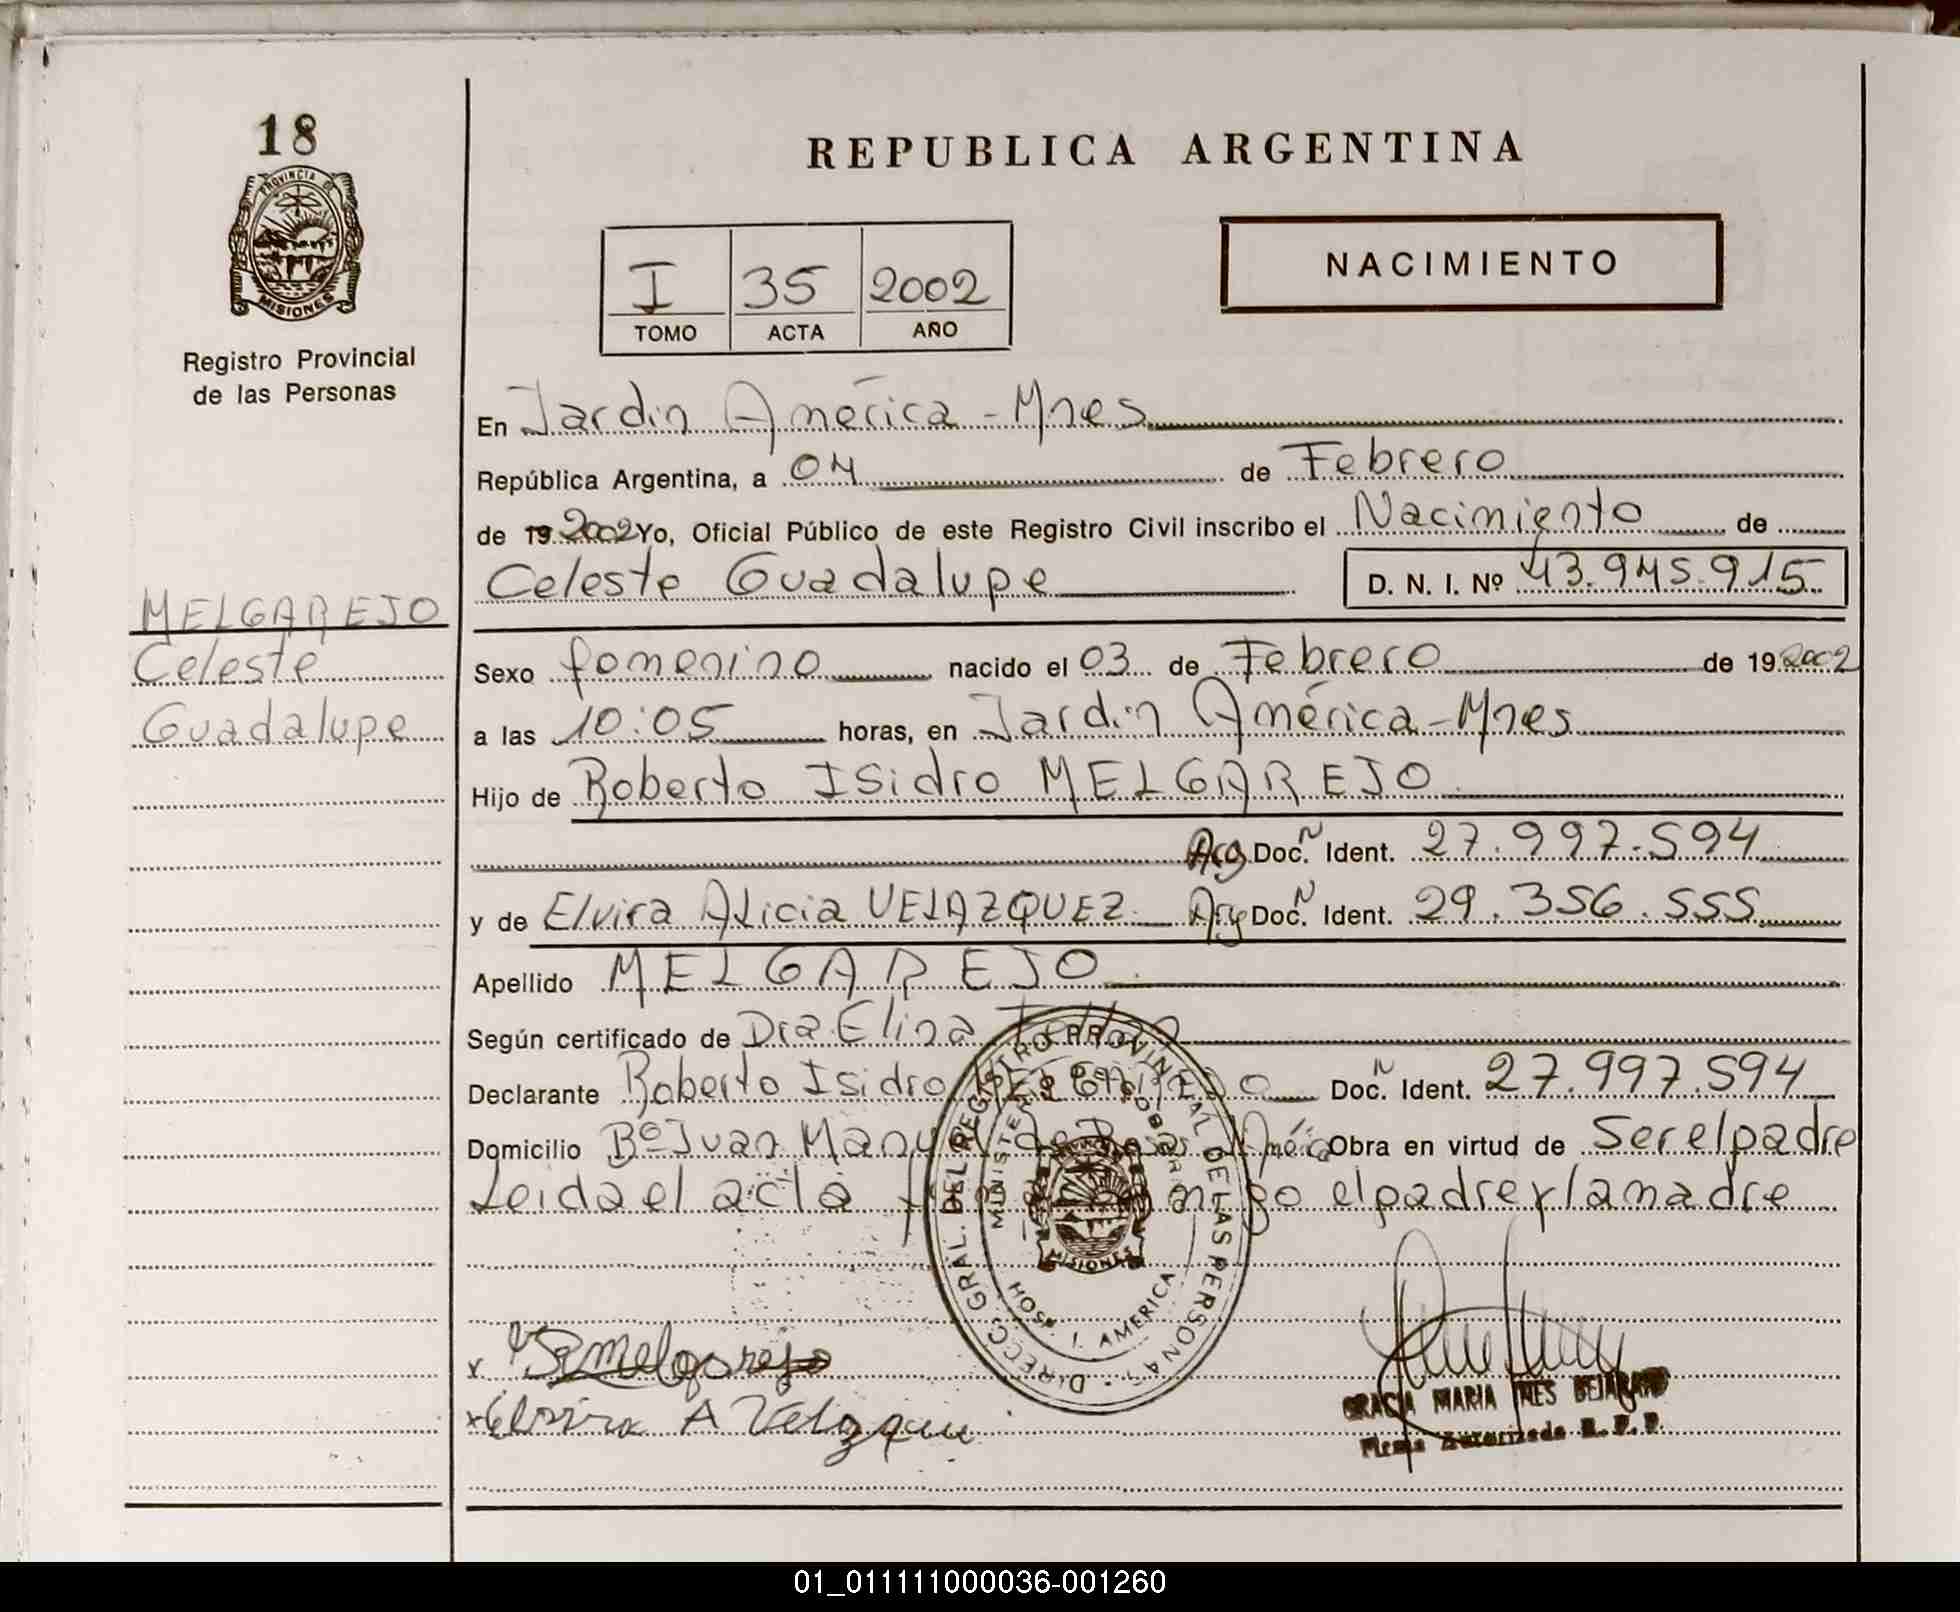 18
PROVINCIA DE
MISIONES
Registro Provincial
de las Personas
MELGAREJO
Celeste
Guadalupe
REPUBLICA ARGENTINA
I 35 2002
TOMO ACTA AÑO
NACIMIENTO
En Jardin América - Mnes
República Argentina, a 04 de Febrero
de 19 2002 Yo, Oficial Público de este Registro Civil inscribo el Nacimiento de
Celeste Guadalupe D. N. I. Nº 43.945.915
Sexo femenino nacido el 03 de Febrero de 19 2002
a las 10:05 horas, en Jardin América - Mnes
Hijo de Roberto Isidro MELGAREJO
Arg Doc. N Ident. 27.997.594
y de Elvira Alicia VELAZQUEZ Arg Doc. N Ident. 29.356.555
Apellido MELGAREJO
Según certificado de Dra Elina
Declarante Roberto Isidro MELGAREJO Doc. N Ident. 27.997.594
Domicilio Bº Juan Manuel de Rosas J. América Obra en virtud de Ser el padre
Leida el acta go el padre y la madre
DIRECC. GRAL. DEL REGISTRO PROVINCIAL DE LAS PERSONAS
MINISTERIO GOBIERNO
MISIONES
HOSP. J. AMERICA
x Melgarejo
x Elvira A Velazquez
GRACIA MARIA INES BEJARANO
Firma Autorizada R. P. P.
01_011111000036-001260